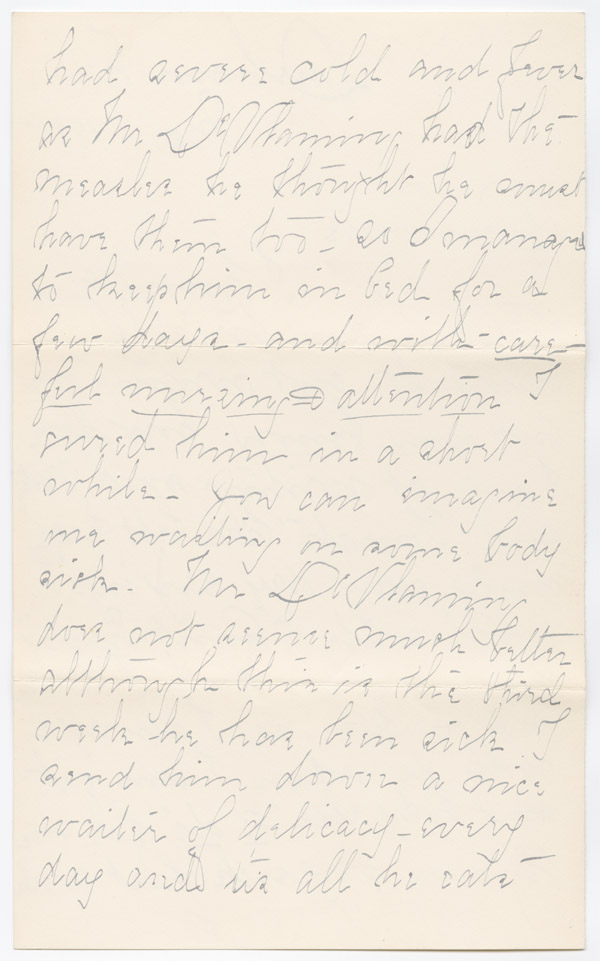 had severe cold and fever
as Mr De Vlaming had the
measles he thought he must
have them too - so I managed
to keep him in bed for a
few days - and with care-
ful nursing & attention I
cured him in a short
while - You can imagine
me waiting on some body
sick. Mr De Vlaming
does not seeme much better
although this is the third
week he has been sick. I
send him down a nice
waiter of delicacy - every
day and its all he eats